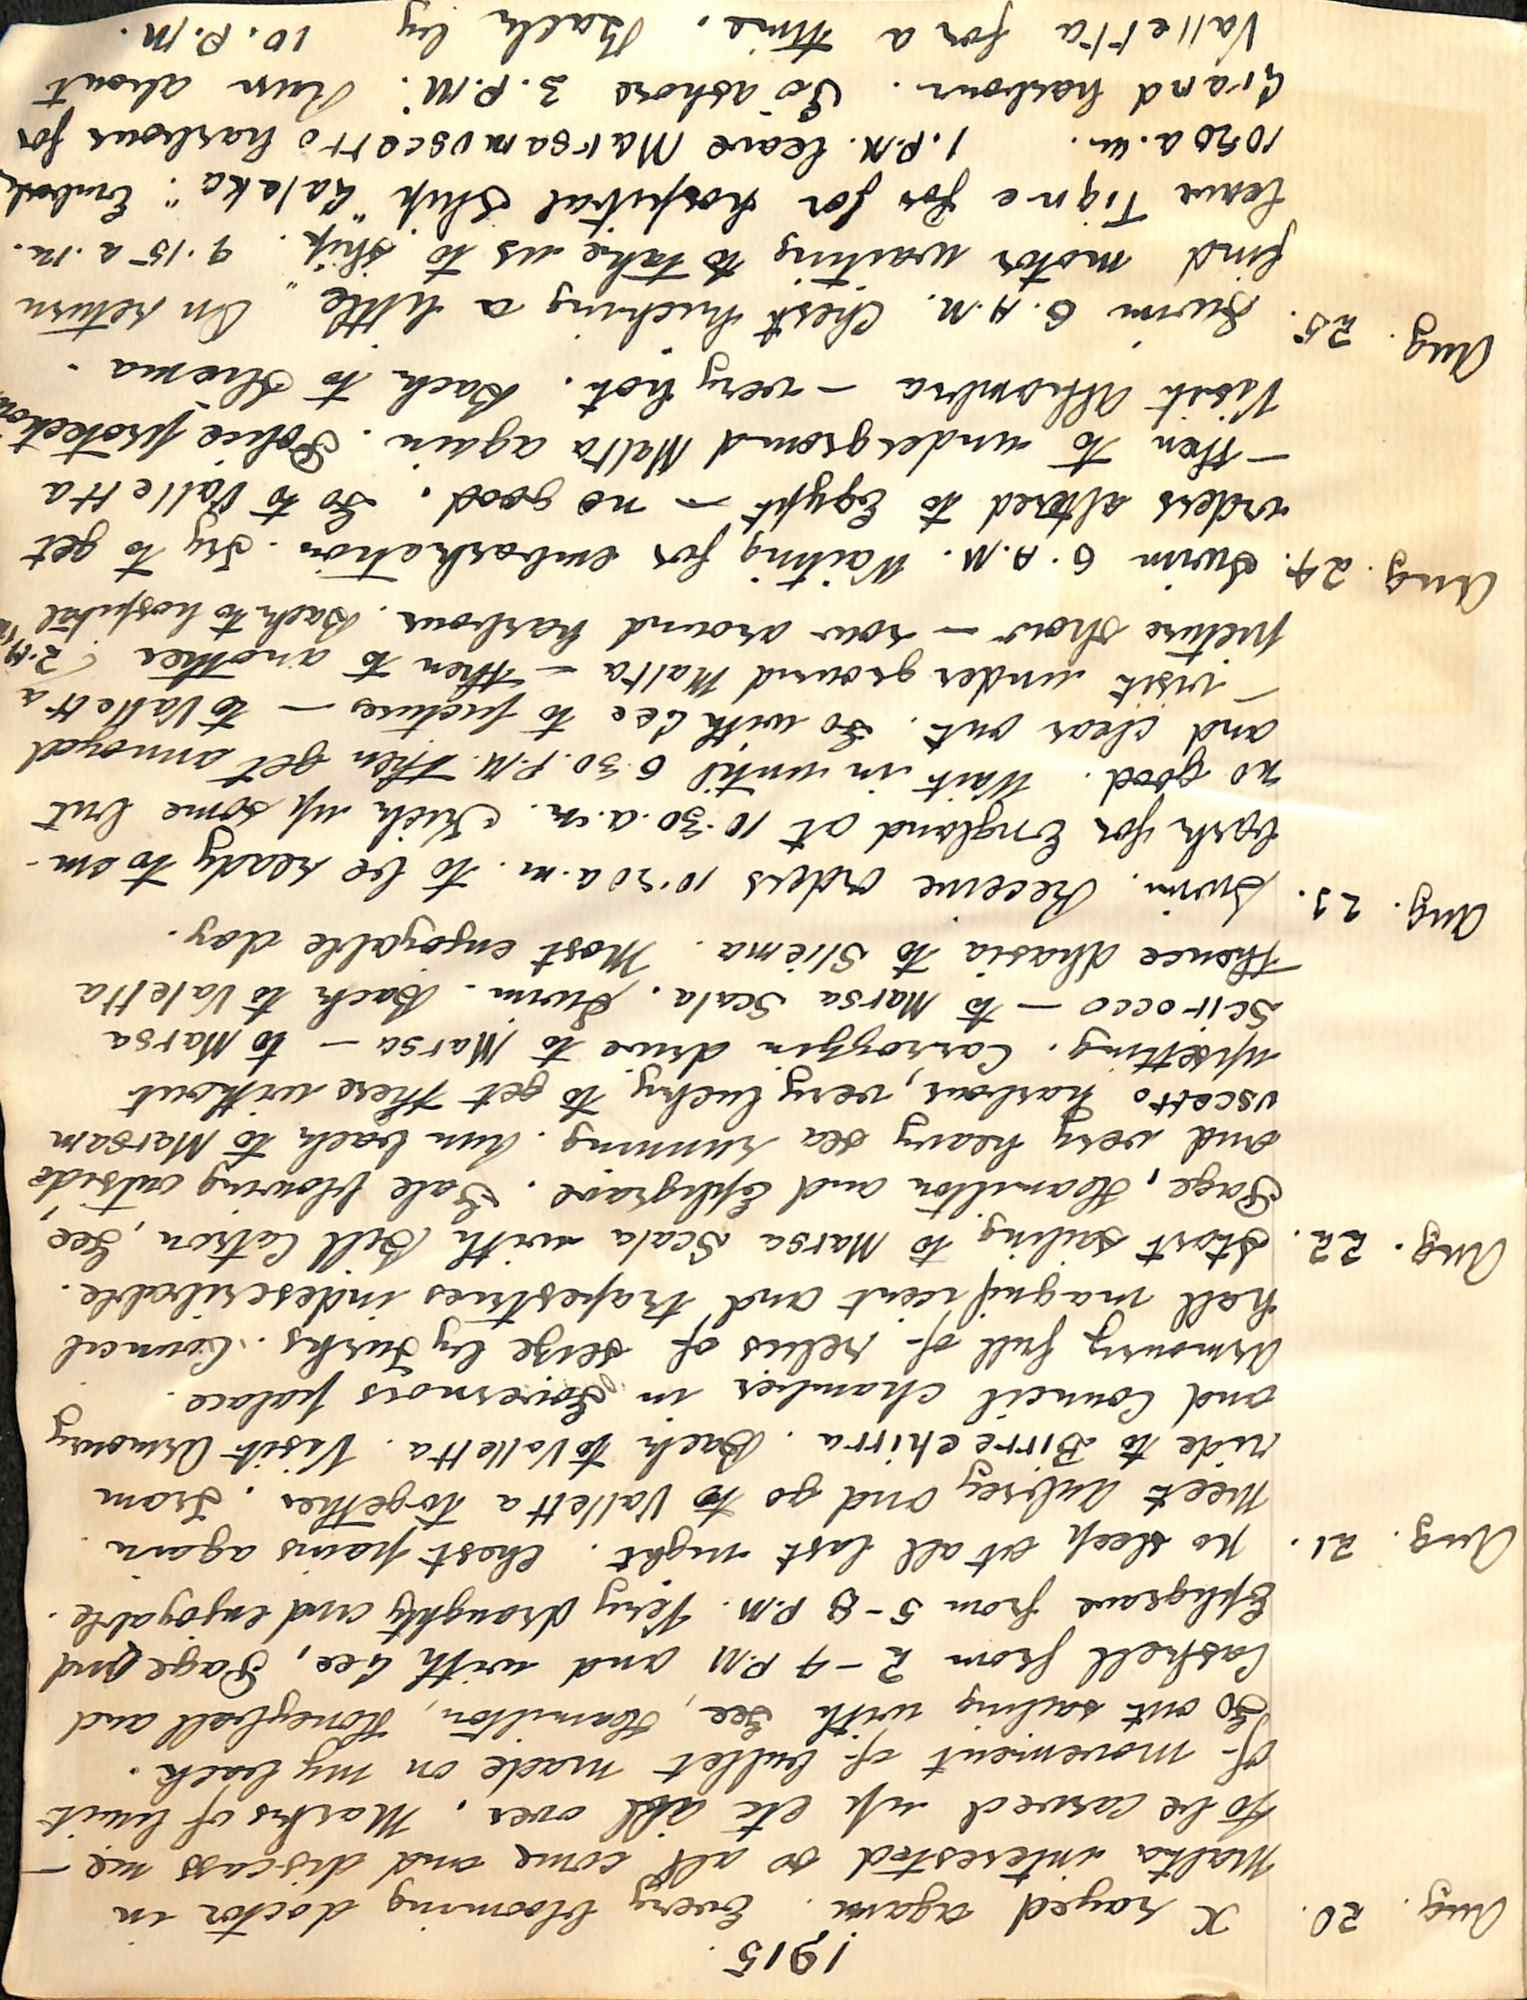 1915
Aug. 20. X rayed again. Every blooming doctor in
Malta interested so all come and discuss me —
to be carved up etc all over. Marks of limit
of movement of bullet made on my back.
Go out sailing with Gee, Hamilton, Honeyball and
Castrell from 2 - 4 P.M and with Gee, Page and
Ephgrave from 5 - 8 P.M. Very draughty and enjoyable.
Aug. 21. No sleep at all last night. Chest pains again.
Meet Aubrey and go to Valletta together. Tram
ride to Birrechirra. Back to Valletta. Visit Armoury
and Council chamber in Governors palace.
Armoury full of relics of seige by Turks. Council
hall magnificent and tapestries indescribable.
Aug. 22. Start sailing to Marsa Scala with Bill Catron, Gee,
Page, Hamilton and Ephgrave. Gale blowing outside
and very heavy sea running. Run back to Marsam
uscetto harbour, very lucky to get there without
upsetting. Carroggin drive to Marsa — to Marsa
Scirocco — to Marsa Scala. Swim. Back to Valetta
thence dhasia to Sliema. Most enjoyable day.
Aug. 23. Swim. Receive orders 10.20 a.m. to be ready to em-
bark for England at 10.30 a.m. Kick up some but
no good. Wait in until 6.30 P.M. then get annoyed
and clear out. Go with Gee to pictures — to Valletta
— visit underground Malta — then to another
picture show — row around harbour. Back to hospital 2.
Aug. 24. Swim 6. A.M. Waiting for embarkation. Try to get
orders altered to Egypt — no good. Go to Valletta
— then to underground Malta again. Police protection
Visit Alhambra — very hot. Back to Sliema.
Aug. 25. Swim 6. A.M. Chest tricking a little. On return
find motor waiting to take us to ship. 9.15 a.m.
leave Tigne for for hospital ship "Galeka". Embark
1020 a.m. 1. P.M. leave Marsamuscetto harbour for
Grand harbour. Go ashore 3. P.M. Run about
Valletta for a time. Back by 10. P.M.